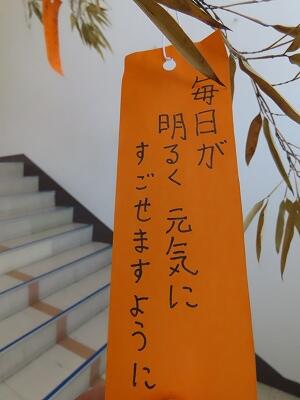 毎日が
明るく 元気に
すごせますように